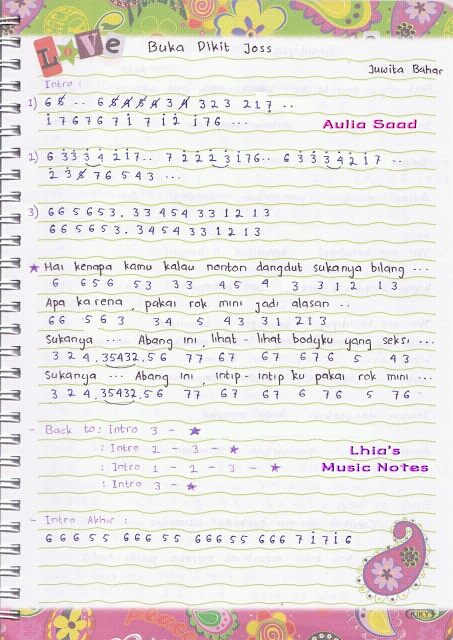 LOVE
Buka Dikit Joss
Juwita Bahar
Intro :
1) 6 5 .. 6 5 4 5 4 3 4 323 217 ..
i 7 6 7 6 7 i 7 i 2 i 7 6 ...
Aulia Saad
2) 6 3 3 3 4 2 1 7 .. 7 2 2 2 3 1 7 6 .. 6 3 3 3 4 2 1 7 ..
2 3 5 7 6 5 4 3 ...
3) 6 6 5 6 5 3 . 3 3 4 5 4 3 3 1 2 1 3
6 6 5 6 5 3 . 3 4 5 4 3 3 1 2 1 3
★ Hai kenapa kamu kalau nonton dangdut sukanya bilang ...
6 6 5 6 5 3 3 3 4 5 4 3 3 1 2 1 3
Apa karena, pakai rok mini jadi alasan ..
6 6 5 6 3 3 4 5 4 3 3 1 2 1 3
Sukanya ... Abang ini, lihat - lihat bodyku yang seksi ...
3 2 4 . 35432 . 5 6 7 7 6 7 6 7 6 7 6 5 4 3
Sukanya ... Abang ini, intip - intip ku pakai rok mini ...
3 2 4 . 35432 . 5 6 7 7 6 7 6 7 6 7 6 5 7 6
- Back to : Intro 3 - ★
: Intro 2 - 3 - ★
: Intro 1 - 2 - 3 - ★
: Intro 3 - ★
Lhia's
Music Notes
- Intro Akhir :
6 6 6 5 5 6 6 6 5 5 6 6 6 5 5 6 6 6 7 i 7 i 6
KIKY